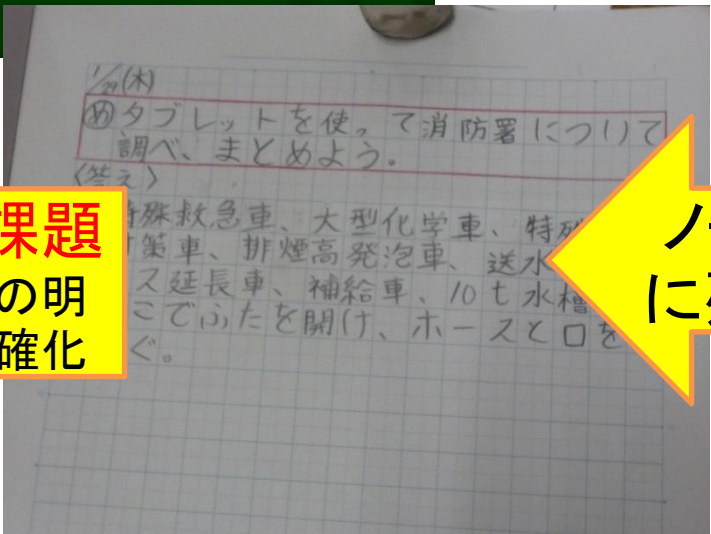 1/29(木)
め タブレットを使って消防署について
調べ、まとめよう。
〈答え〉
特殊救急車、大型化学車、特殊
策車、排煙高発泡車、送水
ス延長車、補給車、10t水槽
こでふたを開け、ホースと口を
ぐ。
課題
の明
確化
ノ
に